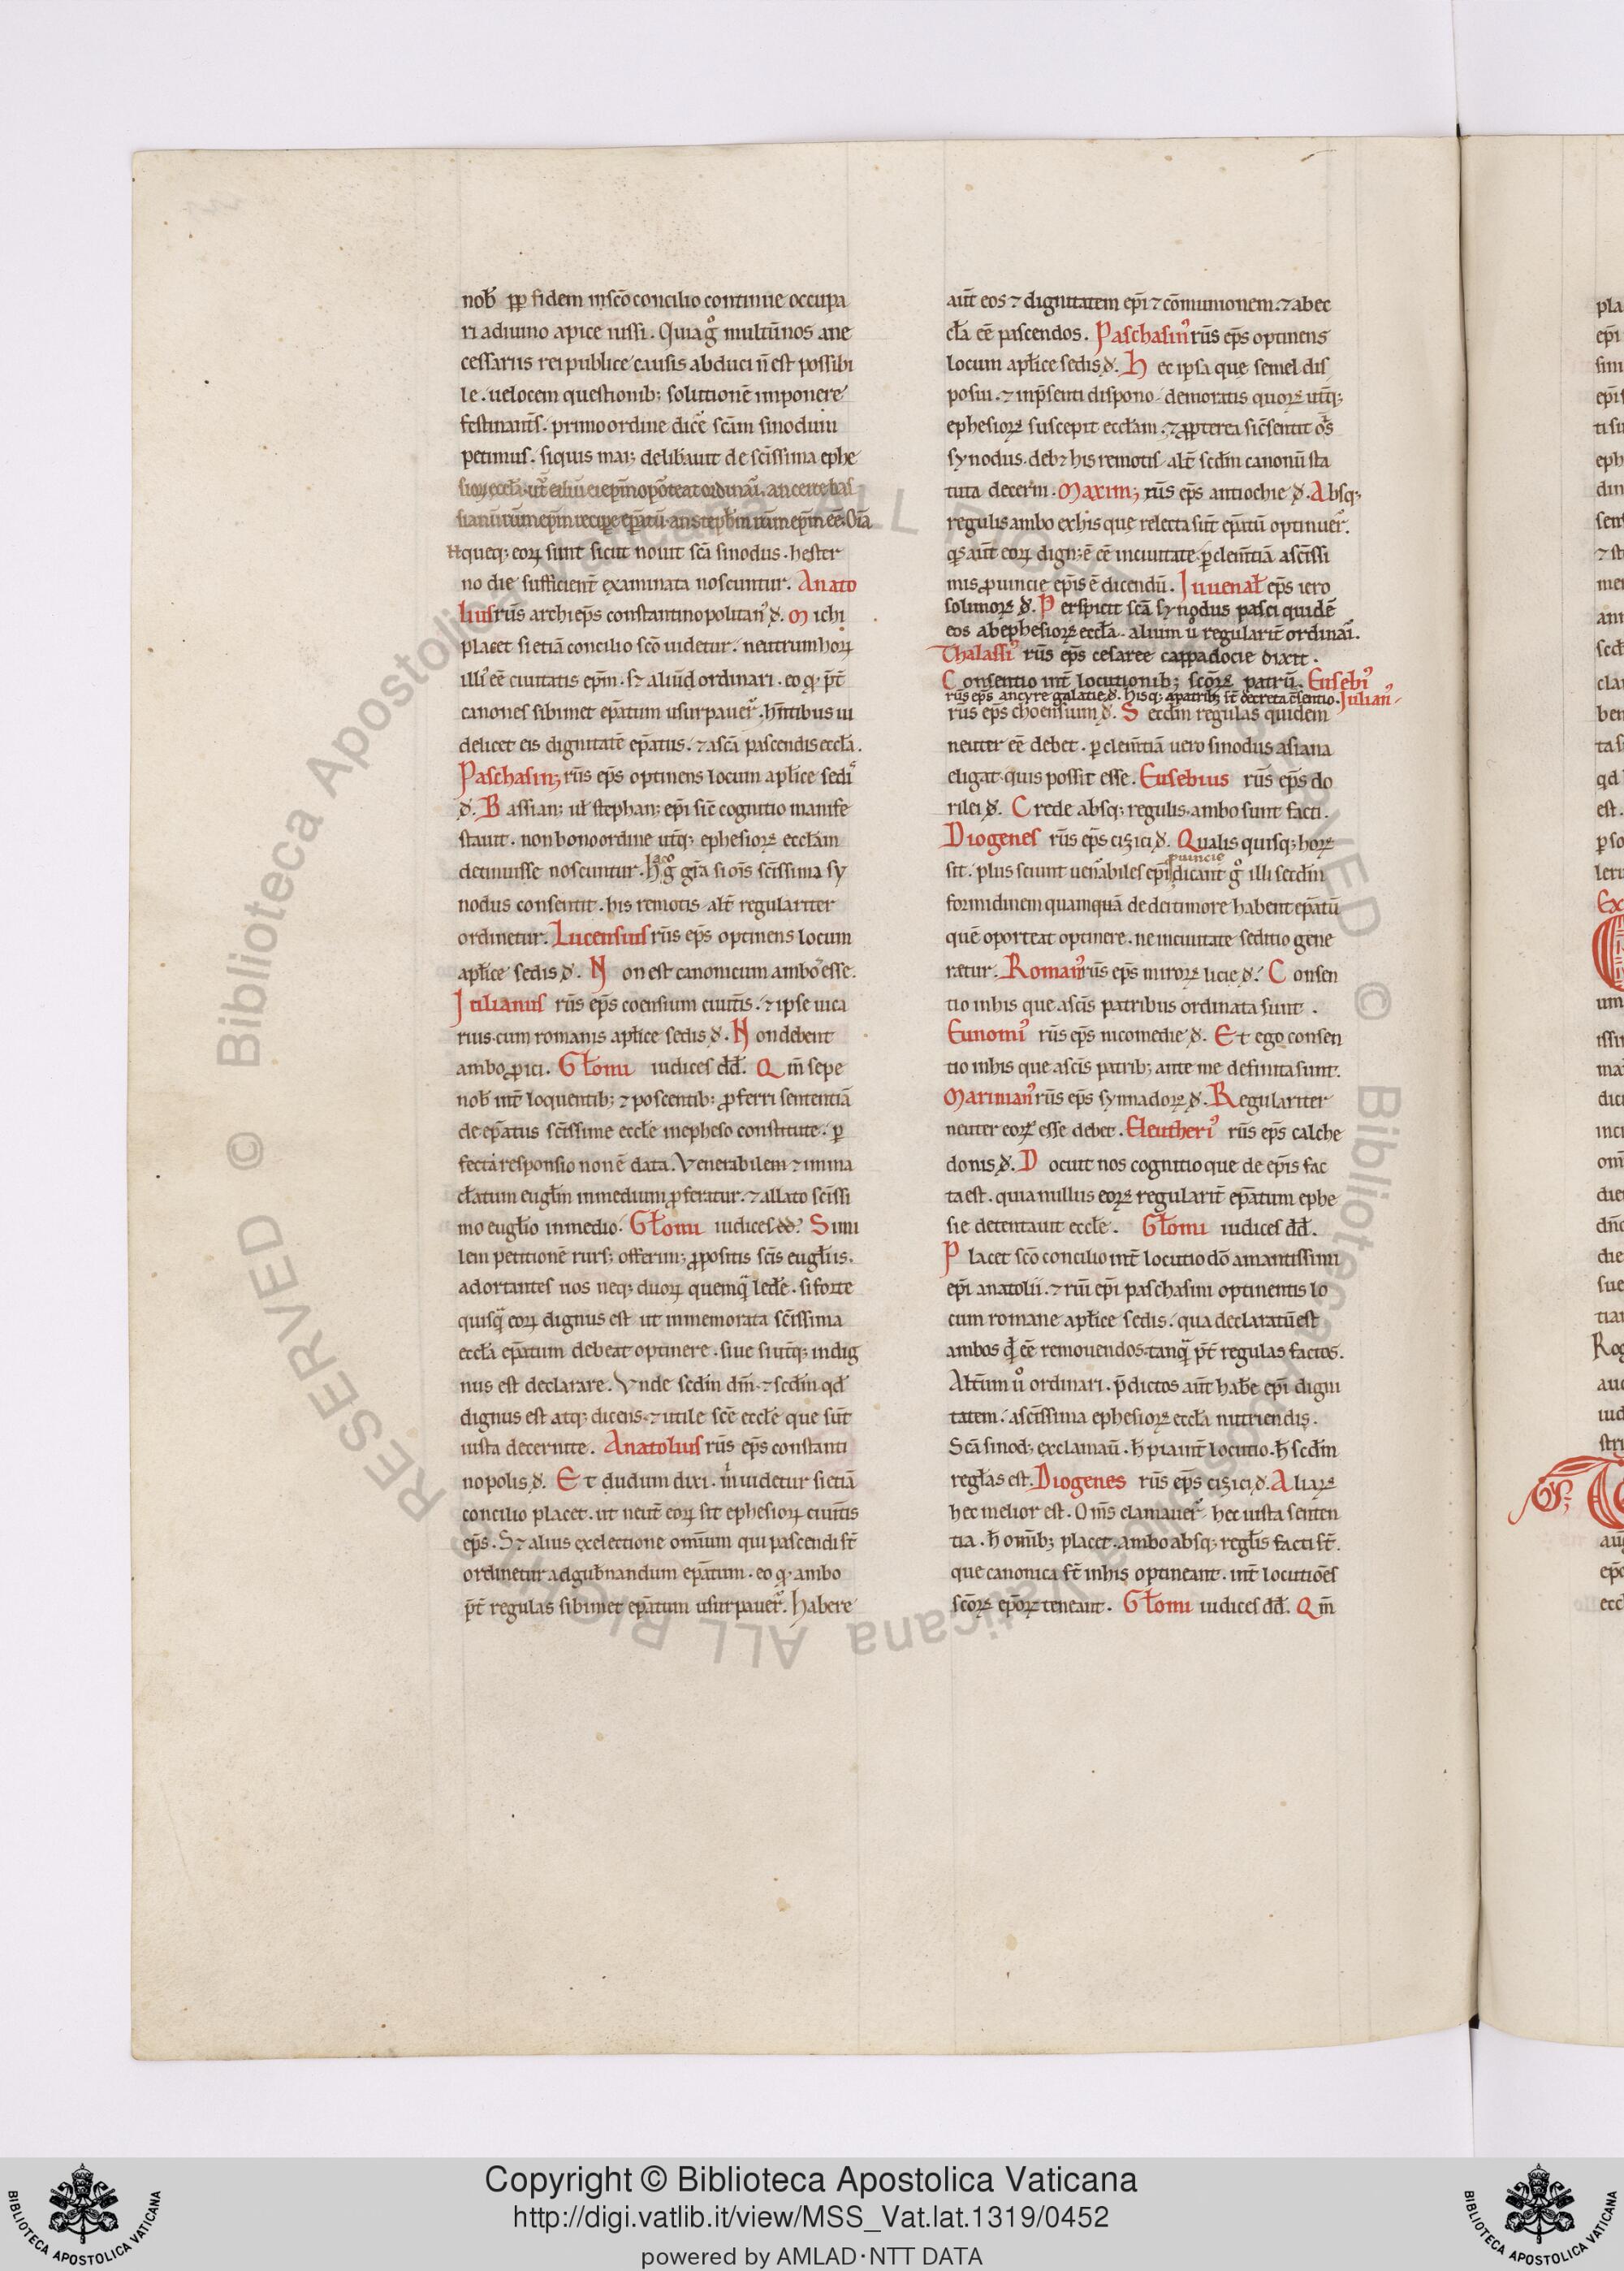 nob̄ ꝓp fidem insc̄o concilio continue occupa
ri adiuino apice iussi. Quia gͦ multū nos ane
cessariis rei publice causis abduci n̄ est possibi
le. uelocem questionib; solutionē imponere
festinant̄s. primo ordine dicē sc̄am sinodum
petimus. siquis mai; delib̄auit de sc̄issima ephe
queq; eoꝝ sunt sicut nouit sc̄a sinodus. hester
no die sufficient̄ examinata noscuntur. Anato
lius rūs archiep̄s constantinopolitan᾽ đ. Michi
placet si etiā concilio sc̄o uidetur. neutrum hoꝝ
illi᾽ eē ciuitatis ep̄m. sꝫ aliūd ordinari. eo q̛ p̄t̄
canones sibimet ep̄atum usurpauer̄. hn̄tibus ui
delicet eis dignitatē ep̄atus. ⁊ asc̄a pascendis eccl̄a.
Paschasin; rūs ep̄s optinens locum apl̄ice sedi᾽
đ. Bassian; ul̄ stephan; ep̄i sic̄ cognitio manife
stauit. non bono ordine utq̄; ephesioꝝ eccl̄am
detinuisse noscuntur. h᷒ gͦ gr̄a si oīs sc̄issima sy
nodus consentit. his remotis alt̄ regulariter
ordinetur. Lucensius rūs ep̄s optinens locum
apl̄ice sedis đ. Non est canonicum ambo esse.
Iulianus rūs ep̄s coensium ciuit̄is. ⁊ ipse uica
rius cum romanis apl̄ice sedis đ. Non debent
ambo ꝓici. Gl̄omi iudices dd̄. Qm̄ sepe
nob̄ int̄ loquentib; ⁊ poscentib; ꝓferri sententiā
de ep̄atus sc̄issime eccl̄e inepheso constitute. ꝑ
fecta responsio non ē data. Venerabilem ⁊ immа
cl̄atum eugl̄m inmedium ꝓferatur. ⁊ allato sc̄issi
mo eugl̄io in medio. Gl̄omi iudices dd̄. Simi
lem petitionē rurs; offerim; ꝓpositis sc̄is eugl̄iis.
adortantes uos neq; duoꝝ quemq̄ ledē. si forte
quisq̄ eoꝝ dignus est ut inmemorata sc̄issima
eccl̄a ep̄atum debeat optinere. siue si utq̄; indig
nus est declarare. Vnde scd̄m dm̄. ⁊ scd̄m qd̄
dignus est atq; dicens. ⁊ utile sc̄e eccl̄e que sūt
iusta decernite. Anatolius rūs ep̄s constanti
nopolis đ. Et dudum dixi. m̄ uidetur si etiā
concilio placet. ut neut̄ eoꝝ sit ephesioꝝ ciuit̄is
ep̄s. Sꝫ alius exelectione omīum qui pascendi st̄
ordinetur ad gub̄nandum ep̄atum. eo q̛ ambo
p̄t̄ regulas sibimet ep̄atum usurpauer̄. habere
aūt eos ⁊ dignitatem ep̄i ⁊ cōmunionem. ⁊ abec
cl̄a eē pascendos. Paschasin᾽ rūs ep̄s optinens
locum apl̄ice sedis đ. Hec ipsa que semel dis
posui. ⁊ inp̄senti dispono. demoratis quoꝝ utq̄;
ephesioꝝ suscepit eccl̄am. ⁊ ꝓpterea sic̄ sentit om̄s
synodus. debꝫ his remotis alt̄ scd̄m canonū sta
tuta decerni. Maxim; rūs ep̄s antiochie đ. Absq;
regulis ambo exhis que relecta sūt ep̄atū optinuer̄.
qs̛ aūt eoꝝ dign; ē eē inciuitate. ꝑ clem̄tiā asc̄issi
mis ꝓuincie ep̄is ē dicendū. Iuuenal̄ ep̄s iero
solimoꝝ đ. Perspicit sc̄a synodus pasci quidē
eos abephesioꝝ eccl̄a. alium ū regularit̄ ordinari.
Thalassi᾽ rūs ep̄s cesaree cappadocie dixit.
Consentio int̄ locutionib; sc̄oꝝ patrū. Eusebi᾽
rūs ep̄s ancyre galatie đ. hisq; apatrib; st̄ decreta c̄sentio. Iulian᾽
rūs ep̄s choensium đ. Secd̄m regulas quidem
neuter eē debet. ꝑ clem̄tiā uero sinodus asiana
eligat quis possit esse. Eusebius rūs ep̄s do
rilei đ. Crede absq; regulis ambo sunt facti.
Diogenes rūs ep̄s cizici đ. Qualis quisq; hoꝝ
ꝓuincie
sit. plus sciunt uen̄abiles ep̄i dicant gͦ illi secd̄m
formidinem quamquā dedeitimore habent ep̄atū
quē oporteat optinere. ne inciuitate seditio gene
retur. Roman᾽ rūs ep̄s miroꝝ licie đ. Consen
tio inhis que asc̄is patribus ordinata sunt.
Eunomi᾽ rūs ep̄s nicomedie đ. Et ego consen
tio inhis que asc̄is patrib; ante me definita sunt.
Marinian᾽ rūs ep̄s synnadoꝝ đ. Regulariter
neuter eoꝝ esse debet. Eleutheri᾽ rūs ep̄s calche
donis đ. Docuit nos cognitio que de ep̄is fac
ta est. quia nullus eoꝝ regularit̄ ep̄atum ephe
sie detentauit eccl̄e. Gl̄omi iudices dd̄.
Placet sc̄o concilio int̄ locutio dō amantissimi
ep̄i anatolii. ⁊ rūi ep̄i paschasini optinentis lo
cum romane apl̄ice sedis. qua declaratū est
ambos qd̄ eē remouendos. tanq̄ p̄t̄ regulas factos.
Alt̄um ū ordinari. p̄dictos aūt hab̄e ep̄i digni
tatem. asc̄issima ephesioꝝ eccl̄a nutriendis.
Sc̄a sinod; exclamaū. h̄ pia int̄ locutio. h̄ scd̄m
regl̄as est. Diogenes rūs ep̄s cizici đ. Aliaꝝ
hec melior est. Om̄s clamauer̄. hec iusta senten
tia. h̄ omīb; placet. ambo absq; regl̄is facti st̄.
que canonica st̄ inhis optineant. int̄ locutiōes
sc̄oꝝ ep̄oꝝ teneant. Gl̄omi iudices dd̄. Qm̄
Copyright © Biblioteca Apostolica Vaticana
http://digi.vatlib.it/view/MSS_Vat.lat.1319/0452
powered by AMLAD·NTT DATA